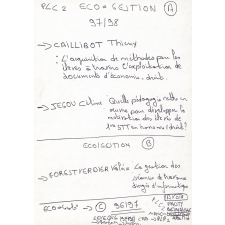 PLC 2 ECO-GESTION A
97/98
→ CAILLIBOT Thierry
L'acquisition de méthodes par les
élèves à travers l'exploitation de
documents d'économie-droit.
→ JEGOU Céline Quelle pédagogie mettre en
œuvre pour développer la
motivation des élèves de
1re STT en économie/droit?
ECO/GESTION B
→ FOREST VERDIER Valérie La gestion des
séances de travaux
dirigés d'informatique
→ C 96/97